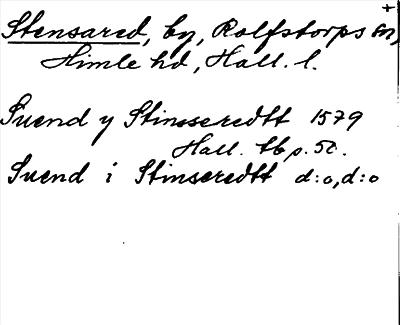 Stensared, by, Rolfstorps sn,
Himle hd, Hall. l.
Suend y Stinsseredtt 1579
Hall. tb p. 50.
Suend i Stinseredtt d:o, d:o